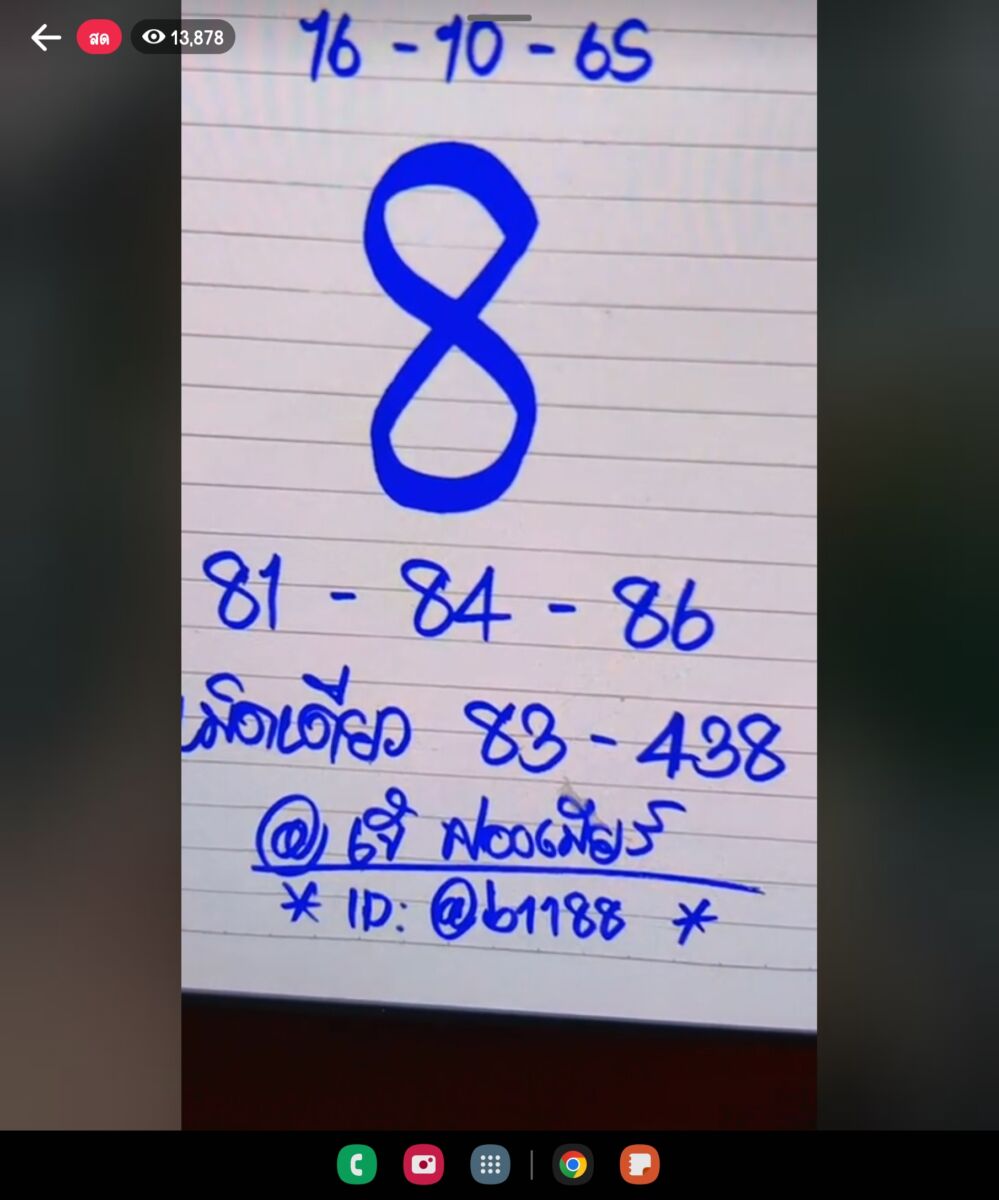 สด 13,878
16 - 10 - 65
8
81 - 84 - 86
เม็ดเดียว 83 - 438
@ เจ๊ ฟองเบียร์
* ID: @b1188 *